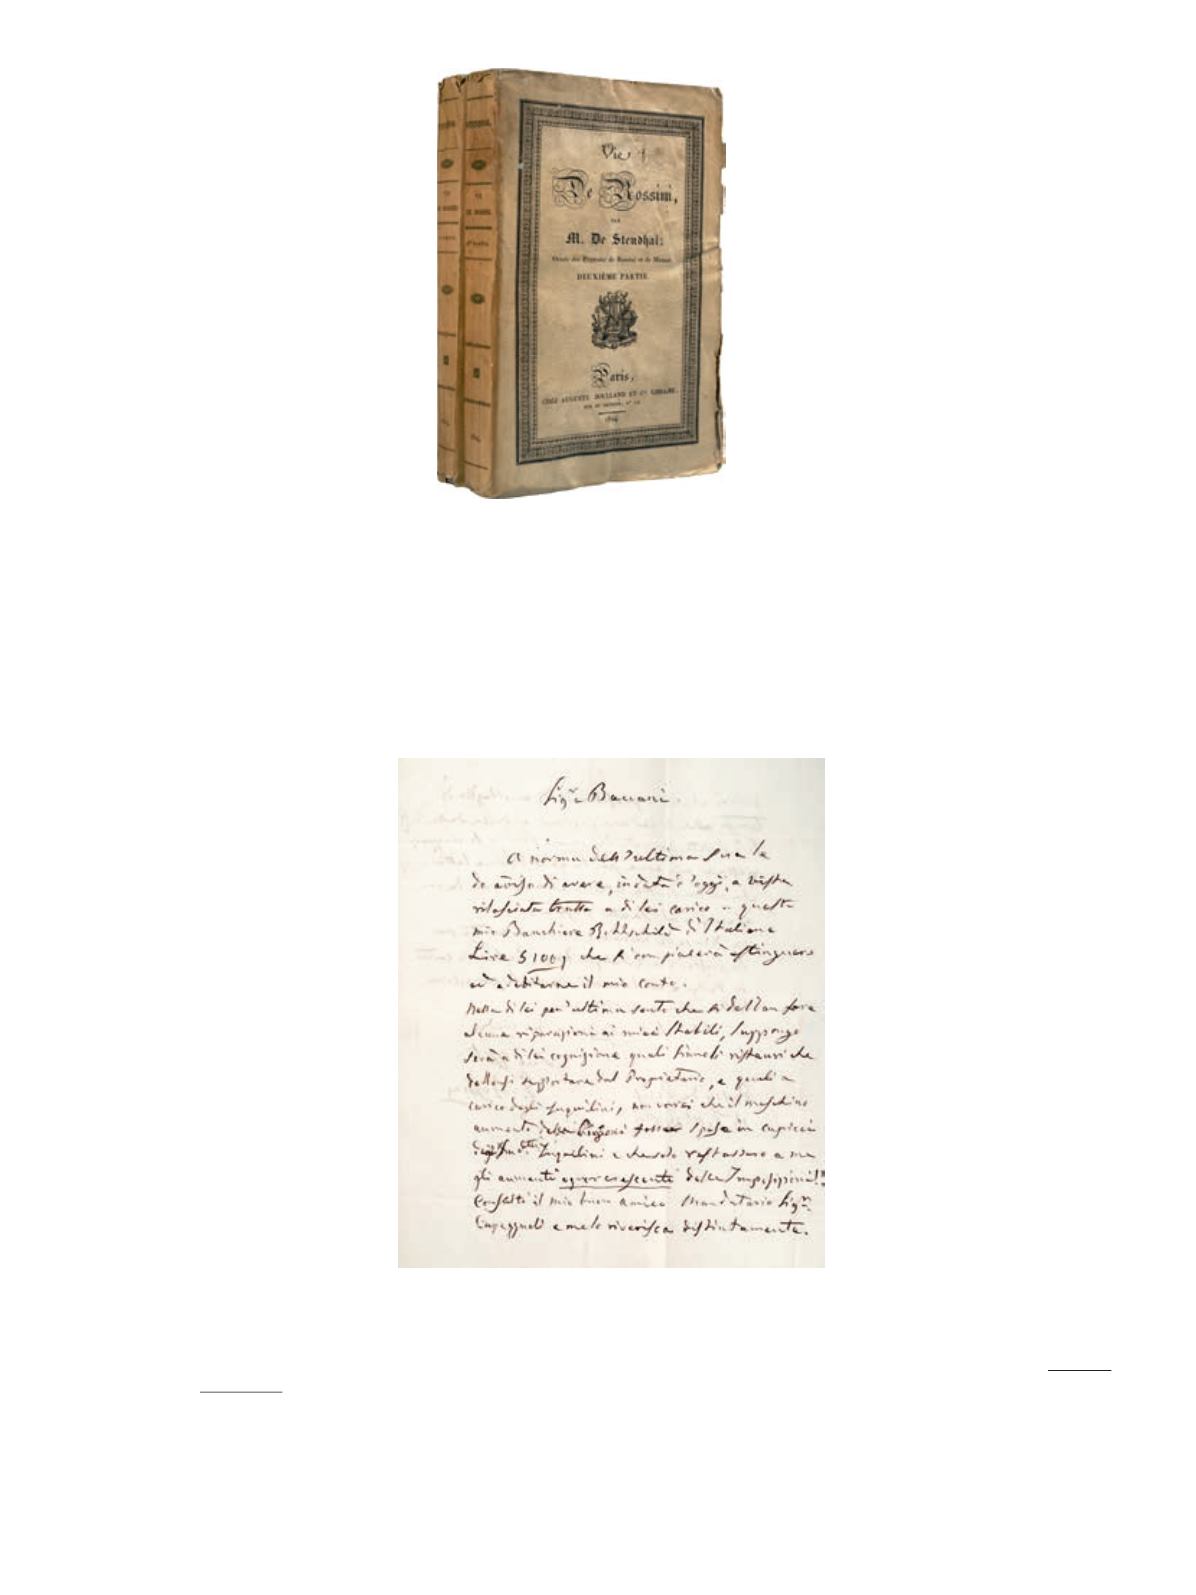 VIE
DE ROSSINI.
1824
Vie
De Rossini,
PAR
M. De Stendhal;
Ornée des Portraits de Rossini et de Mozart.
DEUXIÈME PARTIE.
Paris,
CHEZ AUGUSTE BOULLAND ET Cie, LIBRAIRES,
1824
Sigr Baccani
A norma dell'ultima sua le
do avviso di avere, in data d'oggi, a vista
rilasciata tratta a di lei carico a questo
mio Banchiere Rothschild di Italiane
Lire 5100, che si compiacerà estinguere
ed addebitarne il mio conto.
Nella di lei pen'ultima sento che si debban fare
alcune riparazioni ai miei stabili, suppongo
sarà a di lei cognizione quali siano li ristauri che
debbonsi sopportare dal Proprietario, e quali a
carico degli Inquilini, non vorrei che il meschino
aumento delle Pigioni fosse speso in capricci
Inquilini e che solo restassero a me
gli aumenti ognor crescenti delle Imposizioni!!
Consulti il mio buon amico Mandatario Sigr
e me le riverisca distintamente.